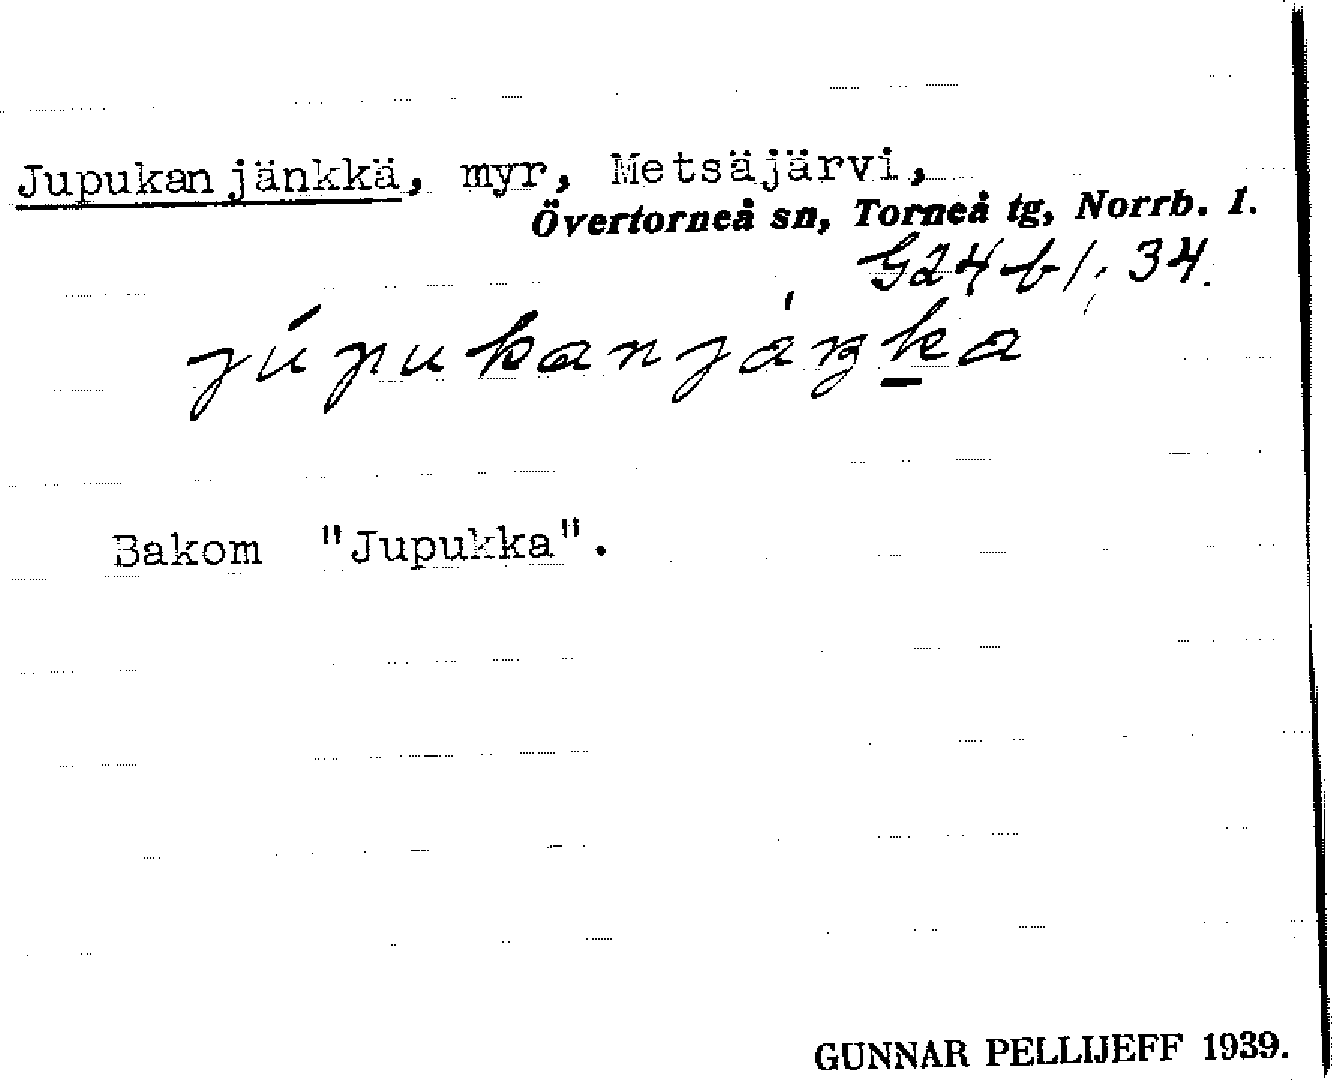 Jupukanjänkkä, myr, Metsäjärvi,
Övertorneå sn, Torneå tg, Norrb. l.
G24 b 1; 34.
Bakom "Jupukka".
GUNNAR PELLIJEFF 1939.